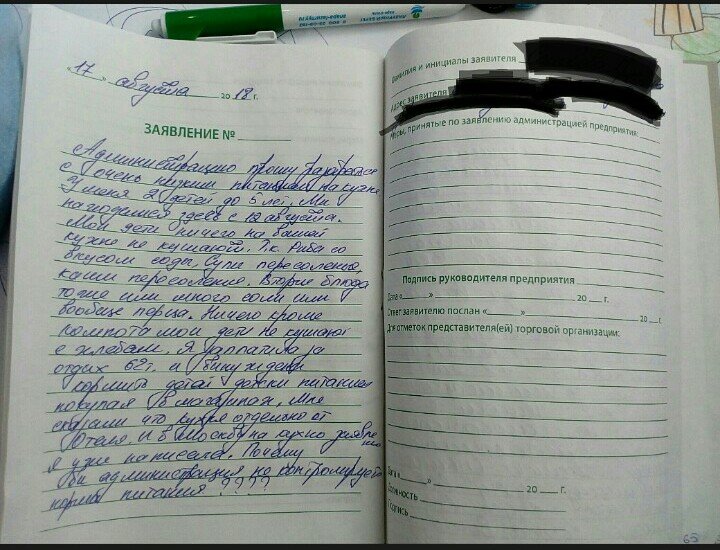 "17" августа 2018 г.
ЗАЯВЛЕНИЕ №
Администрацию прошу разобраться
с очень низким питанием на кухне
У меня 2 детей до 5 лет. Мы
находимся здесь с 12 августа.
Мои дети ничего на вашей
кухне не кушают. Т.к. Рыба со
вкусом соды, Супы пересоленые,
каши пересоленые. Вторые блюда
тоже или много соли или
вообще перца. Ничего кроме
компота мои дети не кушают
с хлебом. Я заплатила за
отдых 62 т. и вынуждена
кормить детей детским питанием
покупая в магазинах. Мне
сказали что кухня отдельно от
Отеля. И в Москвы на кухню заявление
я уже написала. Почему
бы администрация не контролирует
нормы питания ????
Фамилия и инициалы заявителя
Адрес заявителя
Меры, принятые по заявлению администрацией предприятия:
Подпись руководителя предприятия
Дата «____» 20 ___ г.
Ответ заявителю послан «____» 20 ___ г.
Для отметок представителя(ей) торговой организации:
Дата «____» 20 ___ г.
Должность
Подпись
65